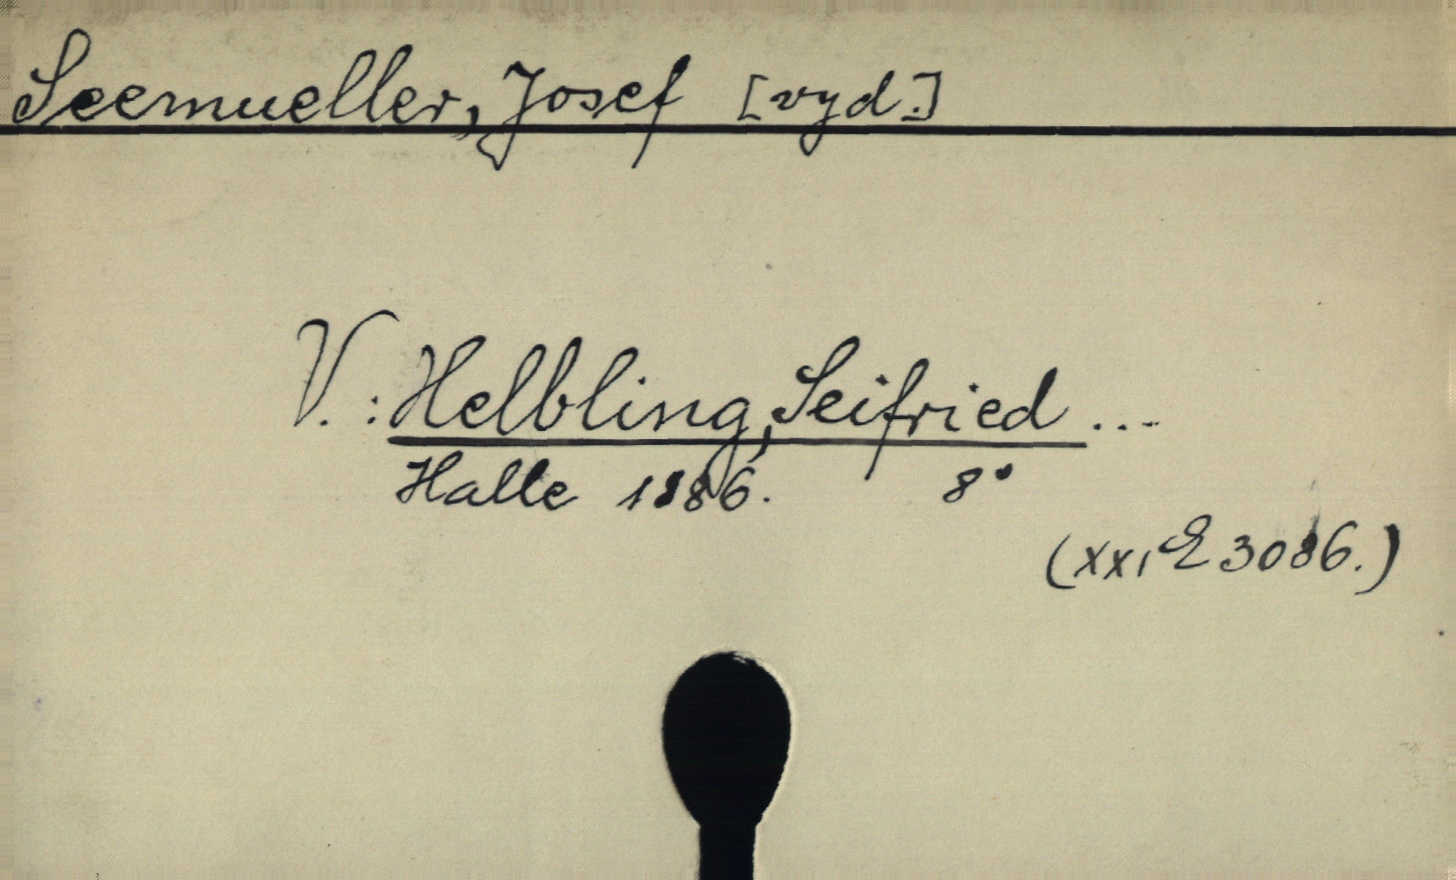 Seemueller, Josef [vyd.]
V.: Helbling, Seifried ...
Halle 1886. 8°
(XXI E 3086.)